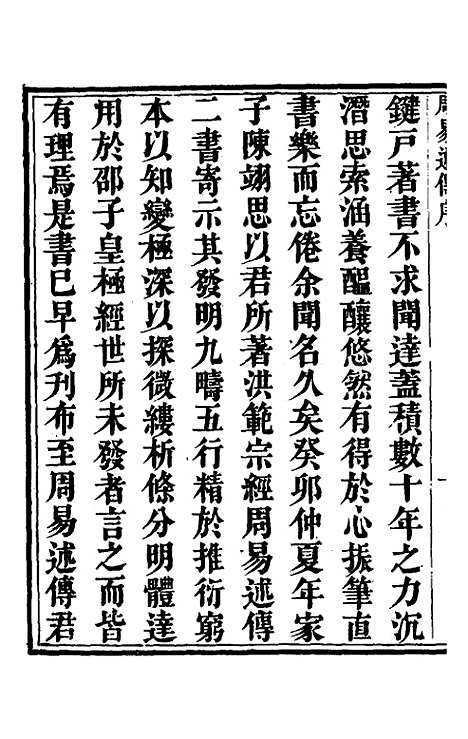 周易述傳序
鍵戸著書不求聞達蓋積數十年之力沉
潛思索涵養醞釀悠然有得於心振筆直
書樂而忘倦余聞名久矣癸卯仲夏年家
子陳翊思以君所著洪範宗經周易述傳
二書寄示其發明九疇五行精於推衍窮
本以知變極深以探微縷析條分明體達
用於邵子皇極經世所未發者言之而皆
有理焉是書已早爲刋布至周易述傳君